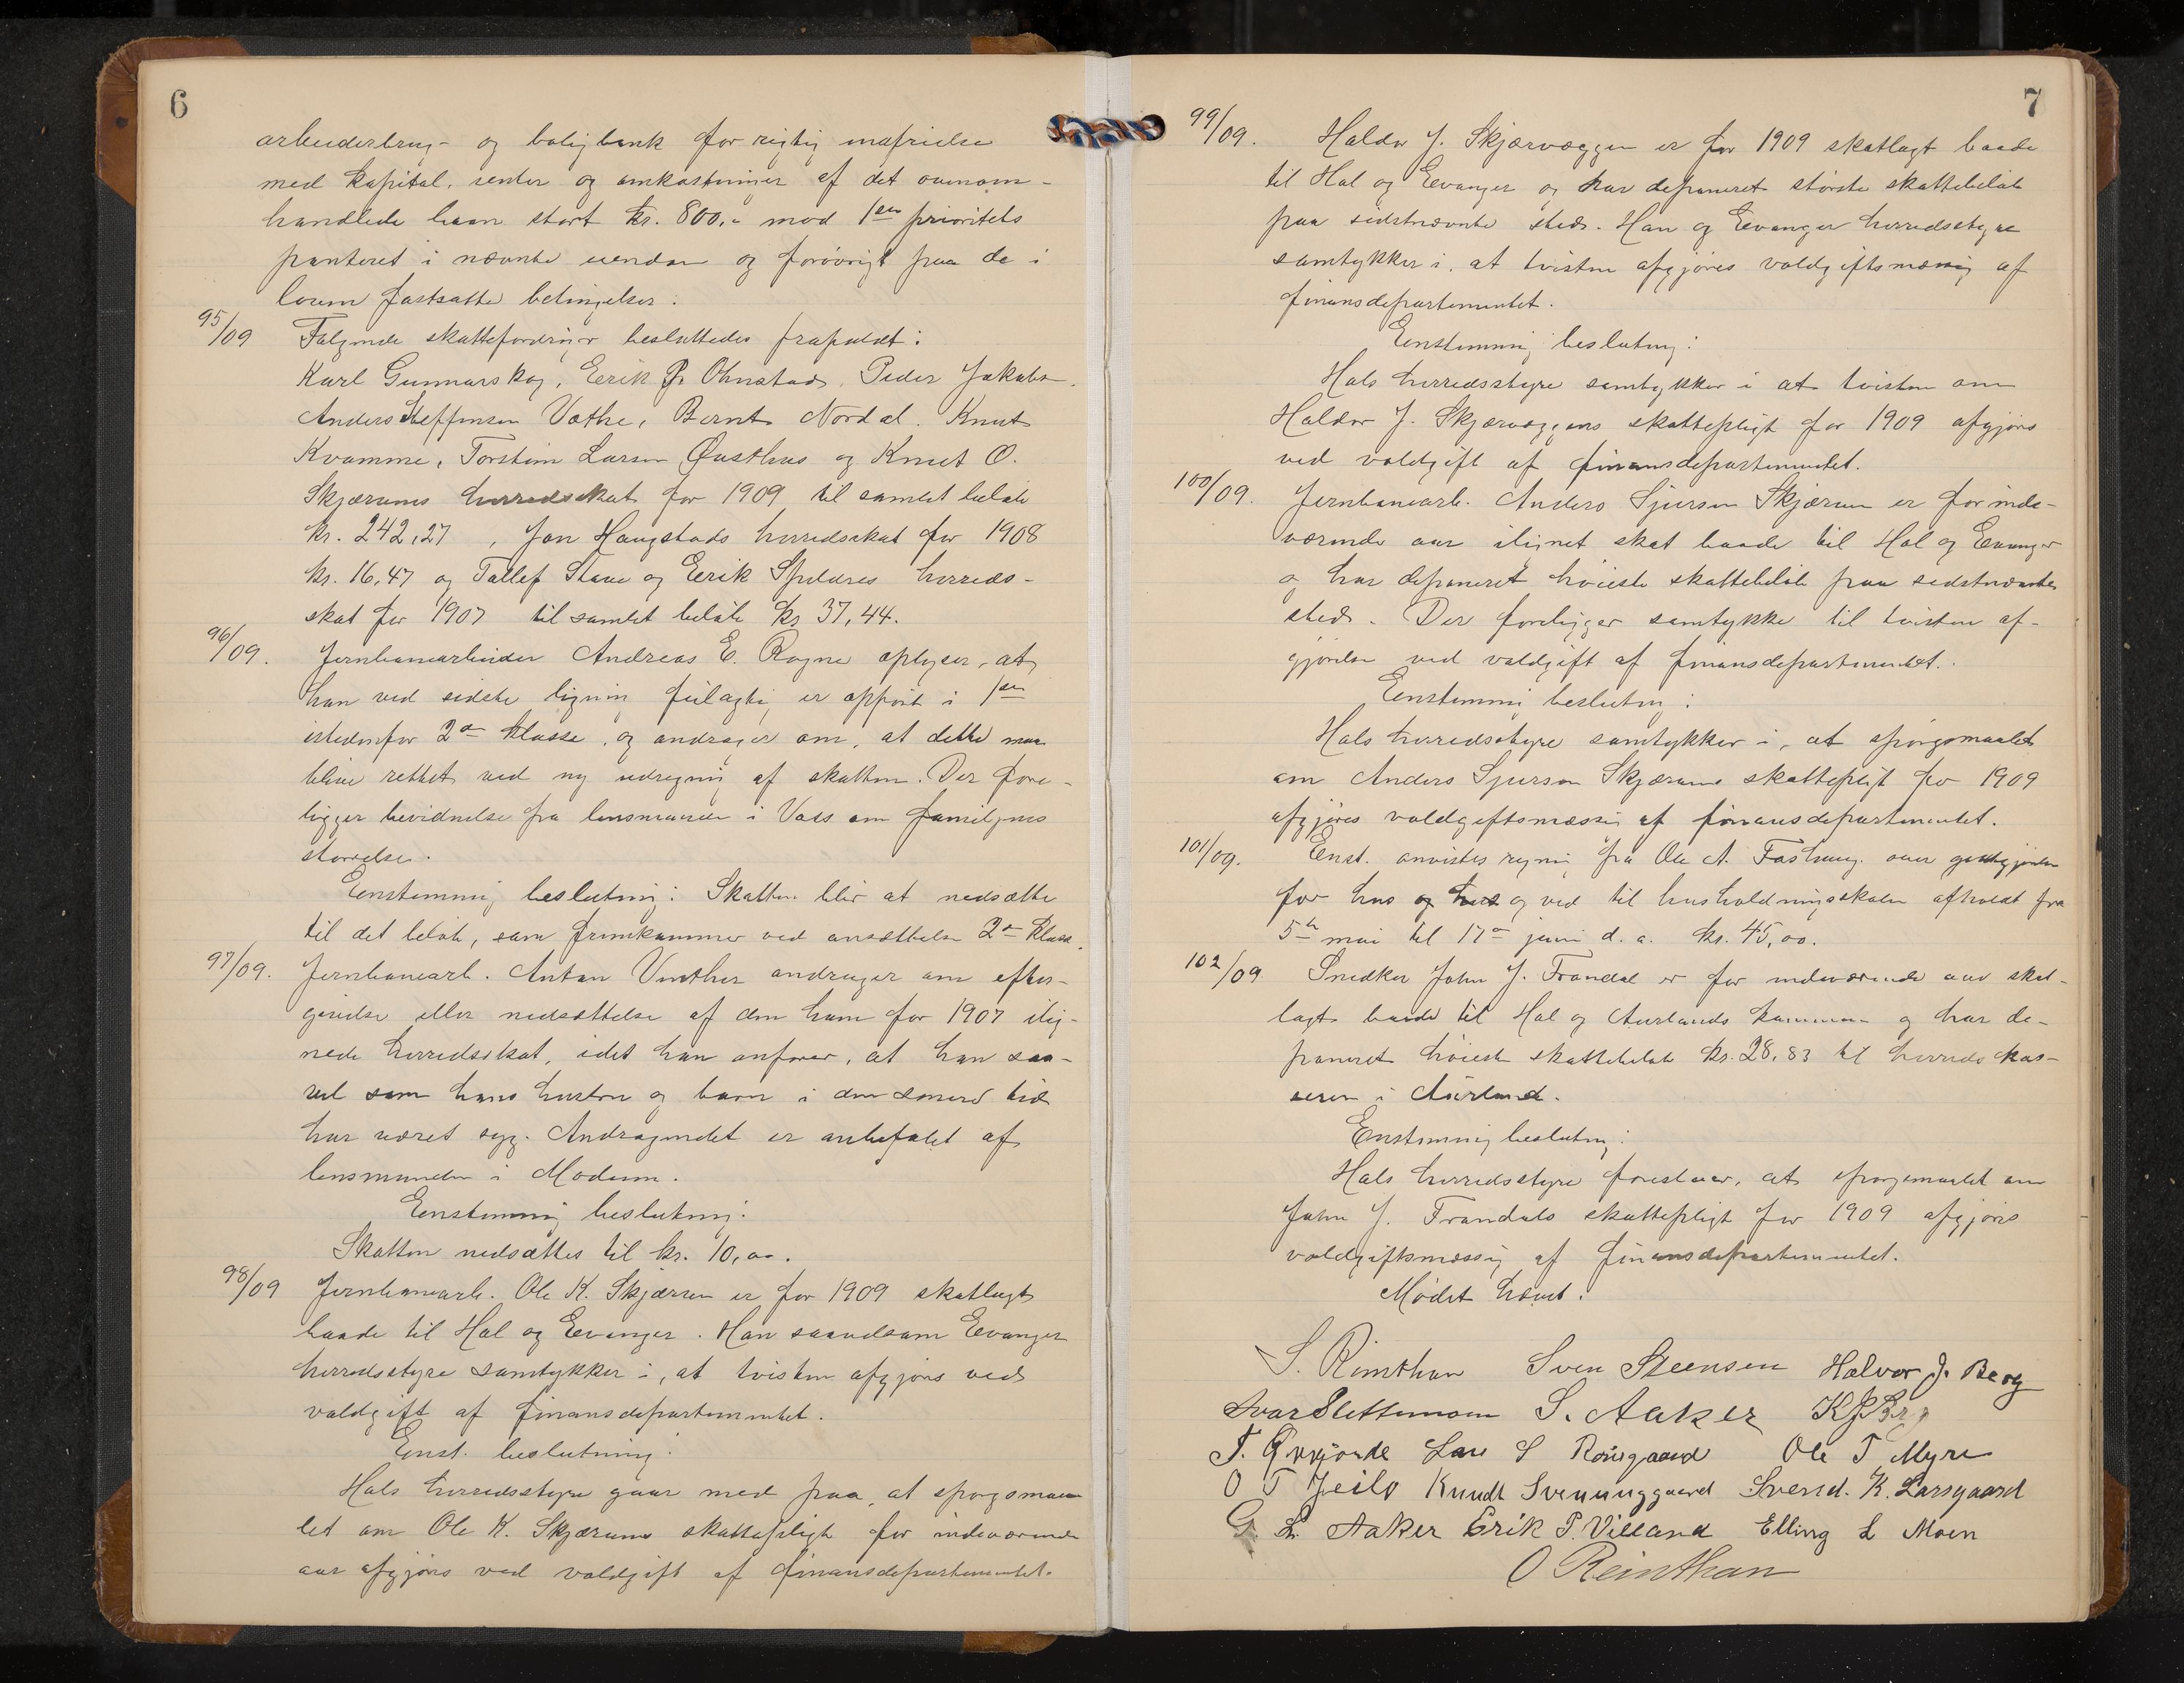 6
arbeiderbrug- og boligbank for rigtig indfrielse
med kapital, renter og omkostninger af det ovenom-
handlede laan stort kr. 800,- mod 1ste prioritets
panteret i nævnte eiendom og forøvrigt paa de i
loven fastsatte betingelser.
95/09 Følgende skattefordringer besluttedes frafaldt:
Karl Gunnarskog, Eerik P. Ohnstad, Peder Jakobsen,
Anders Steffensen Vathe, Bernt Nordal, Knut
Kvamme, Torstein Larsen Øusthus og Knut O.
Skjærums herredsskat for 1909 til samlet beløb
kr. 242,27, Jon Haugstads herredsskat for 1908
kr. 16,47 og Tollef Stave og Eerik Spildres herreds-
skat for 1907 til samlet beløb kr 37,44.
96/09. Jernbanearbeider Andreas E. Rogne oplyser, at
han ved sidste ligning feilagtig er opført i 1ste
istedenfor 2den klasse, og andrager om, at dette maa
blive rettet ved ny udregning af skatten. Der fore-
ligger bevidnelse fra lensmanden i Voss om familjens
størrelse.
Eenstemmig beslutning: Skatten blir at nedsætte
til det beløb, som fremkommer ved ansættelse 2den klasse.
97/09. Jernbanearb. Anton Vinther andrager om efter-
givelse eller nedsættelse af den ham for 1907 ilig-
nede herredsskat, idet han anfører, at han saa-
vel som hans hustru og barn i den senere tid
har været syg. Andragendet er anbefalet af
lensmanden i Modum.
Eenstemmig beslutning:
Skatten nedsættes til kr. 10,00.
98/09 Jernbanearb. Ole K. Skjærum er for 1909 skatlagt
baade til Hol og Eevanger. Han saavelsom Eevanger
herredsstyre samtykker i, at tvisten afgjøres ved
voldgift af finansdepartementet.
Eenst. beslutning:
Hols herredsstyre gaar med paa, at spørgsmaa-
let om Ole K. Skjærums skattepligt for indeværende
aar afgjøres ved voldgift af finansdepartementet.
7
99/09. Haldor J. Skjærvæggen er for 1909 skatlagt baade
til Hol og Eevanger og har deponeret største skattebeløb
paa sidstnævnte sted. Han og Eevanger herredsstyre
samtykker i, at tvisten afgjøres voldgiftsmæssig af
finansdepartementet.
Eenstemmig beslutning:
Hols herredsstyre samtykker i at tvisten om
Haldor J. Skjærvæggens skattepligt for 1909 afgjøres
ved voldgift af finansdepartementet.
100/09. Jernbanearb. Anders Sjurson Skjærum er for inde-
værende aar ilignet skat baade til Hol og Eevanger
og har deponeret høieste skattebeløb paa sidstnævnte
sted. Der foreligger samtykke til tvistens af-
gjørelse ved voldgift af finansdepartementet.
Eenstemmig beslutning:
Hols herredsstyre samtykker i, at spørgsmaalet
om Anders Sjurson Skjærums skattepligt for 1909
afgjøres voldgiftsmæssig af finansdepartementet.
101/09. Eenst. anvistes regning fra Ole A. Fosheug. over godtgjørelse
for hus og og ved til husholdningsskolen afholdt fra
5te mai til 17de juni d. a. kr. 45,00.
102/09 Snedker John J. Frondal er for indeværende aar skat-
lagt baade til Hol og Aurlands kommune og har de-
poneret høieste skattebeløb kr. 28,83 til herredskas-
seren i Aurland.
Eenstemmig beslutning:
Hols herredsstyre foreslaar, at spørgsmaalet om
John J. Frondals skattepligt for 1909 afgjøres
voldgiftsmæssig af finansdepartementet.
Mødet hævet.
S. Rimthun Sven Steensen Halvor J. Berg
Ivar Slettemoen S. Aaker K J Berg
T. Grøgjorde Lars S Røisgaard Ole T Myre
O T Jeilo Knudt Svenunggaard Svend. K. Larsgaard
G. L. Aaker Erik T. Villand Elling L Moen
O Reinthan